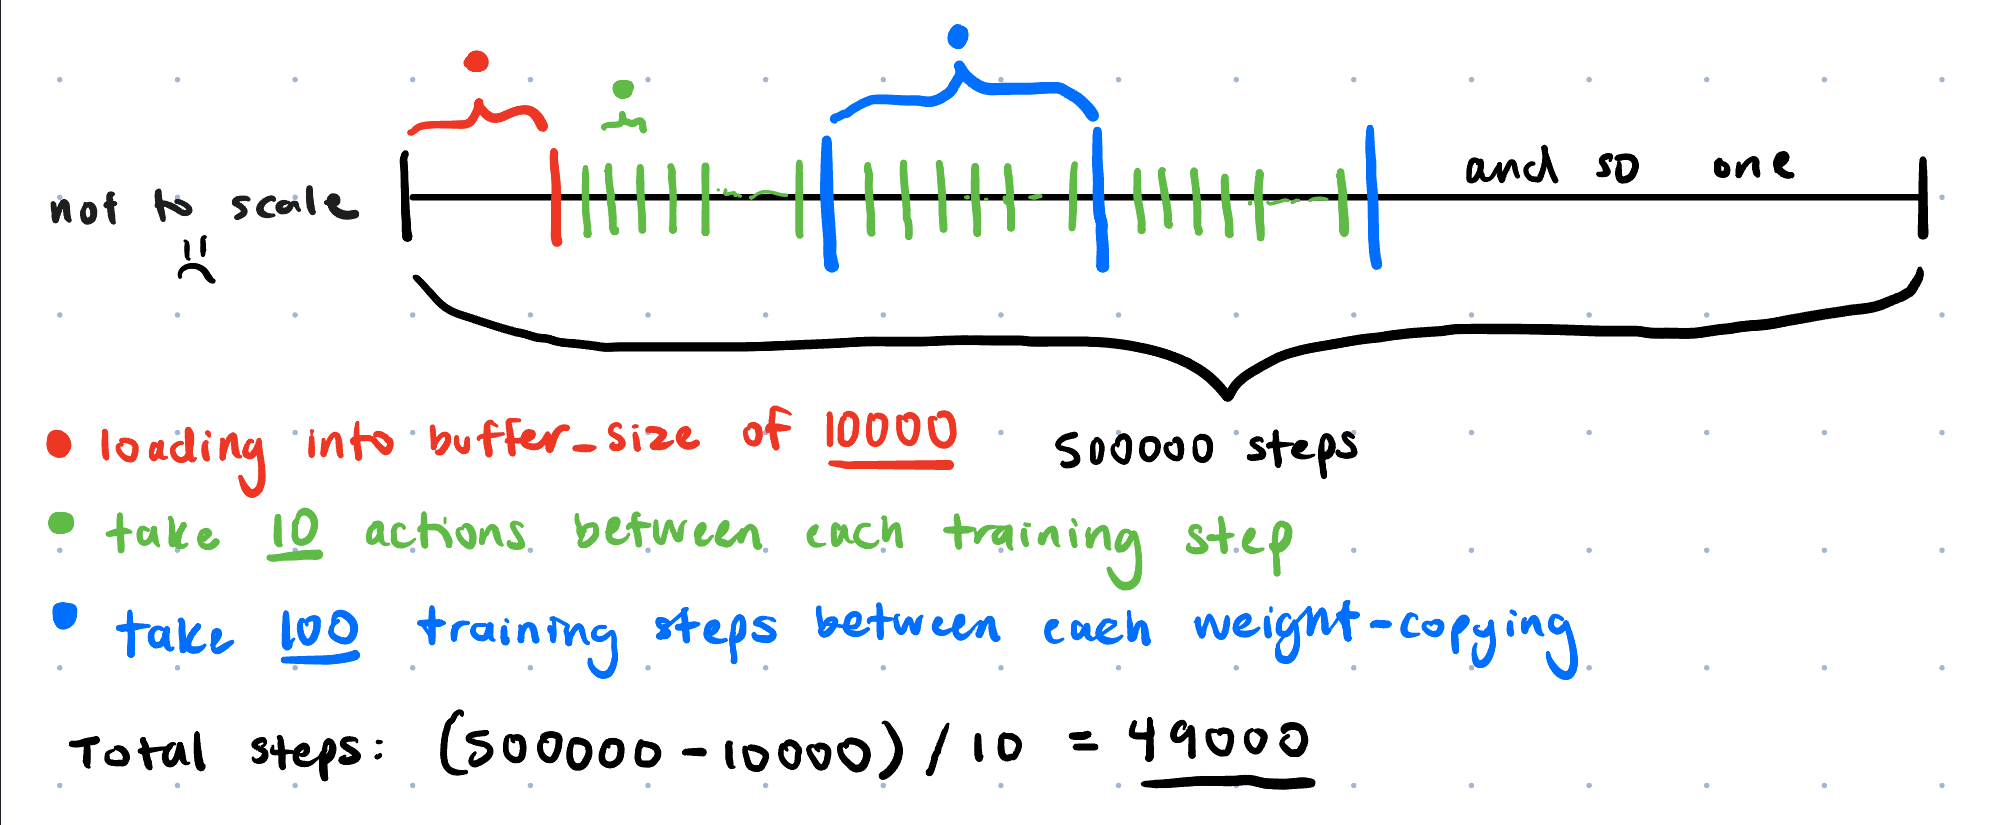 and so one
not to scale
500000 steps
loading into buffer_size of 10000
take 10 actions between each training step
take 100 training steps between each weight-copying
Total steps: (500000 - 10000) / 10 = 49000